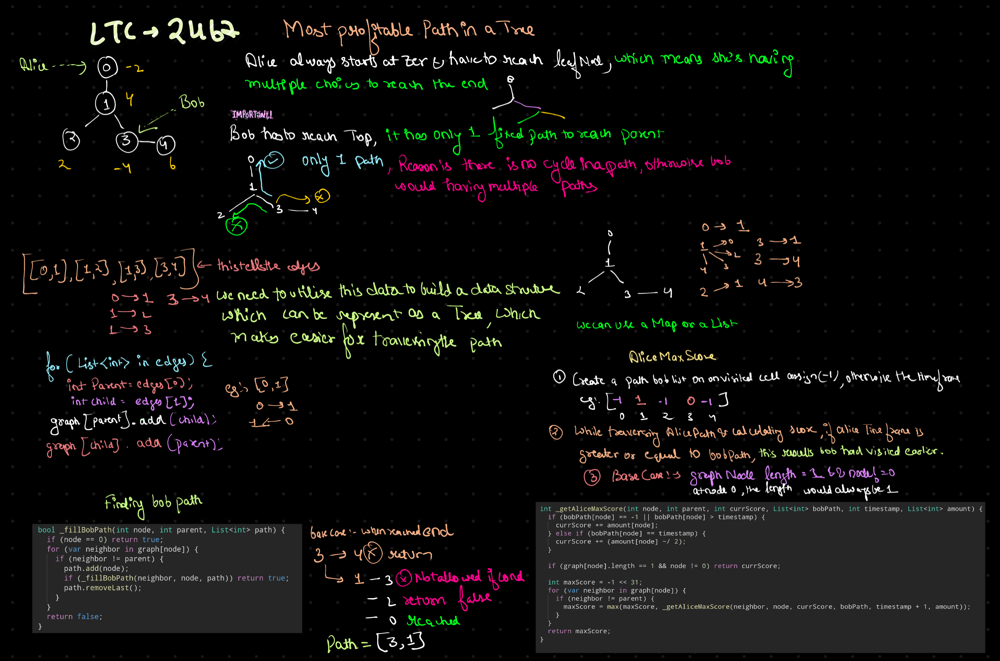 LTC → 2467 Most profitable Path in a Tree
Alice
0 -2
1 4
Bob
2 3 4
2 -4 6
Alice always starts at zero & have to reach leaf Node, which means she's having
multiple choices to reach the end
0
IMPORTANT!
Bob has to reach Top, it has only 1 fixed path to reach parent
0 only 1 path, Reason is there is no cycle in a path, otherwise bob
would having multiple paths
1
2 3 4
[[0,1],[1,2],[1,3],[3,4]] ← this tells the edges
0 → 1 3 → 4
1 → 2
1 → 3
we need to utilise this data to build a data struture
which can be represent as a Tree, which
makes easier for traversing the path
0
1
2 3 4
0 → 1
1 → 0 3 → 1
2 3 → 4
2 → 1 4 → 3
we can use a Map or a List
for (List<int> in edges) {
int Parent = edges[0];
int child = edges[1];
graph[parent].add(child);
graph[child].add(parent);
eg:. [0,1]
0 → 1
1 ← 0
Alice Max Score
1 Create a path bob list on unvisited cell assign(-1), otherwise the timeframe
eg:. [-1 1 -1 0 -1]
0 1 2 3 4
2 While traversing Alice Path & calculating score, if alice Time frame is
greater or equal to bobpath, this results bob had visited earlier.
3 Base Case:→ graph Node length = 1 && node != 0
at node 0, the length would always be 1
Finding bob path
bool _fillBobPath(int node, int parent, List<int> path) {
if (node == 0) return true;
for (var neighbor in graph[node]) {
if (neighbor != parent) {
path.add(node);
if (_fillBobPath(neighbor, node, path)) return true;
path.removeLast();
}
}
return false;
}
base case:- when reached end
3 → 4 x return
1 - 3 x Not allowed if cond
- 2 return false
- 0 reached
Path = [3,1]
int _getAliceMaxScore(int node, int parent, int currScore, List<int> bobPath, int timestamp, List<int> amount) {
if (bobPath[node] == -1 || bobPath[node] > timestamp) {
currScore += amount[node];
} else if (bobPath[node] == timestamp) {
currScore += (amount[node] ~/ 2);
}
if (graph[node].length == 1 && node != 0) return currScore;
int maxScore = -1 << 31;
for (var neighbor in graph[node]) {
if (neighbor != parent) {
maxScore = max(maxScore, _getAliceMaxScore(neighbor, node, currScore, bobPath, timestamp + 1, amount));
}
}
return maxScore;
}